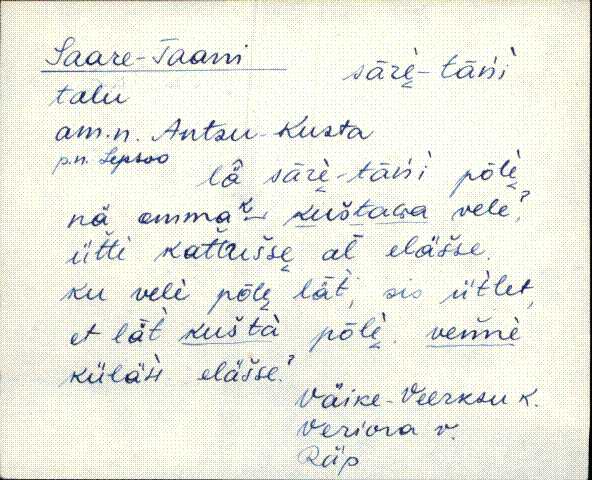 Saare-Taani
sārè̮-tāńì
talu
am.n. Antsu-Kusta
p.n. Lepsoo
lǟ sārè̮-tāńì pōlè̮
nä ommaᴷ kuštava velè?
üťťi kattušse̮ aĺ eläšse.
ku velè pōle̮ lät, sis ütlet,
et lät kuštà pōlè̮. veńnè
külän eläšse?
Väike-Veerksu k.
Veriora v.
Räp